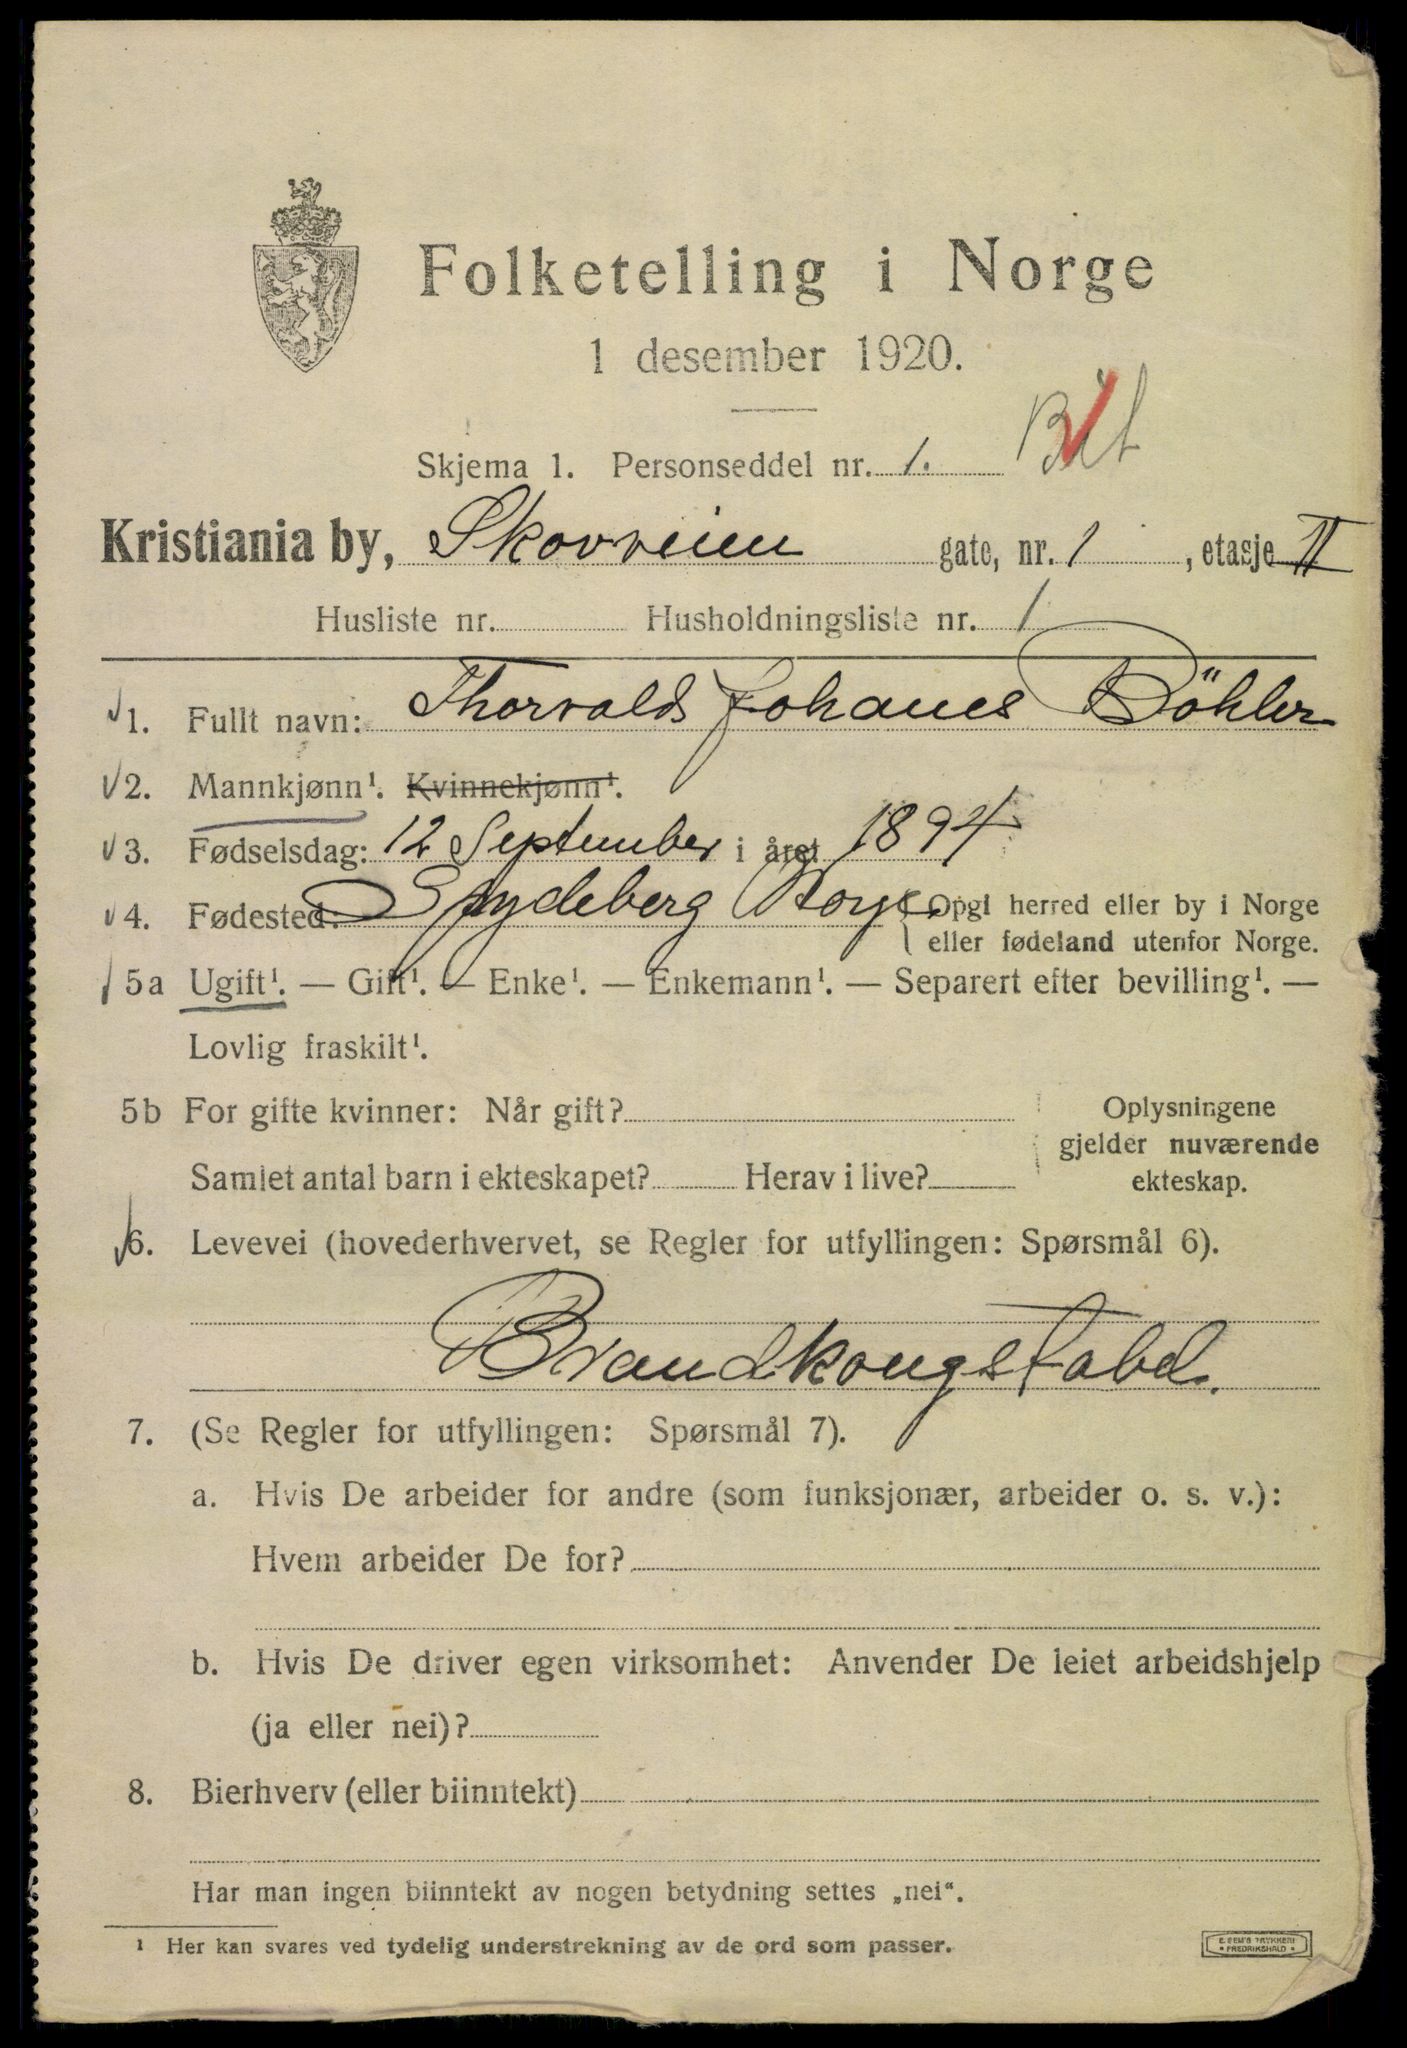 Folketelling i Norge
1 desember 1920.
Skjema 1. Personseddel nr. 1.
Kristiania by, Skovveien gate, nr. 1, etasje II
Husliste nr. Husholdningsliste nr. 1
1. Fullt navn: Thorvald Johanes Böhler
2. Mannkjønn¹. Kvinnekjønn¹.
3. Fødselsdag: 12 September i året 1894
4. Fødested: Spydeberg Norge {Opgi herred eller by i Norge
eller fødeland utenfor Norge.
5a Ugift¹. — Gift¹. — Enke¹. — Enkemann¹. — Separert efter bevilling¹. —
Lovlig fraskilt¹.
5b For gifte kvinner: Når gift? Oplysningene
gjelder nuværende
Samlet antal barn i ekteskapet? Herav i live? ekteskap.
6. Levevei (hovederhvervet, se Regler for utfyllingen: Spørsmål 6).
Brandkongstabel.
7. (Se Regler for utfyllingen: Spørsmål 7).
a. Hvis De arbeider for andre (som funksjonær, arbeider o. s. v.):
Hvem arbeider De for?
b. Hvis De driver egen virksomhet: Anvender De leiet arbeidshjelp
(ja eller nei)?
8. Bierhverv (eller biinntekt)
Har man ingen biinntekt av nogen betydning settes „nei“.
¹ Her kan svares ved tydelig understrekning av de ord som passer.
E. SEM'S TRYKKERI
• FREDRIKSHALD •